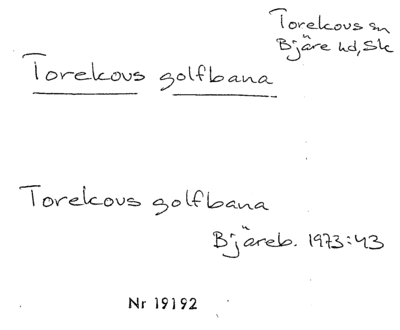 Torekovs sn
Bjäre hd, Sk
Torekovs golfbana
Torekovs golfbana
Bjäreb. 1973:43
Nr 19192